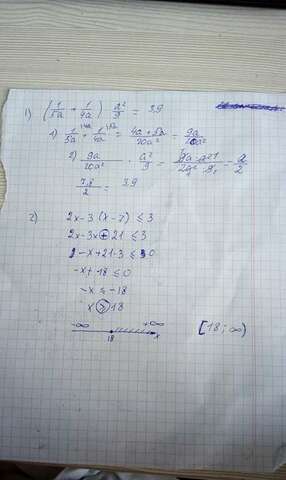 1) (1/5a + 1/4a) · a²/9 = 3,9
1) 1/5a + 1/4a = 4a + 5a/20a² = 9a/20a²
2) 9a/20a² · a²/9 = = a/2
7,8/2 = 3,9
2) 2x-3(x-7) ≤ 3
2x-3x+21 ≤ 3
-x+21-3 ≤ 0
-x+18 ≤ 0
-x ≤ -18
x ≥ 18
-∞ +∞
18 x
[18; ∞)